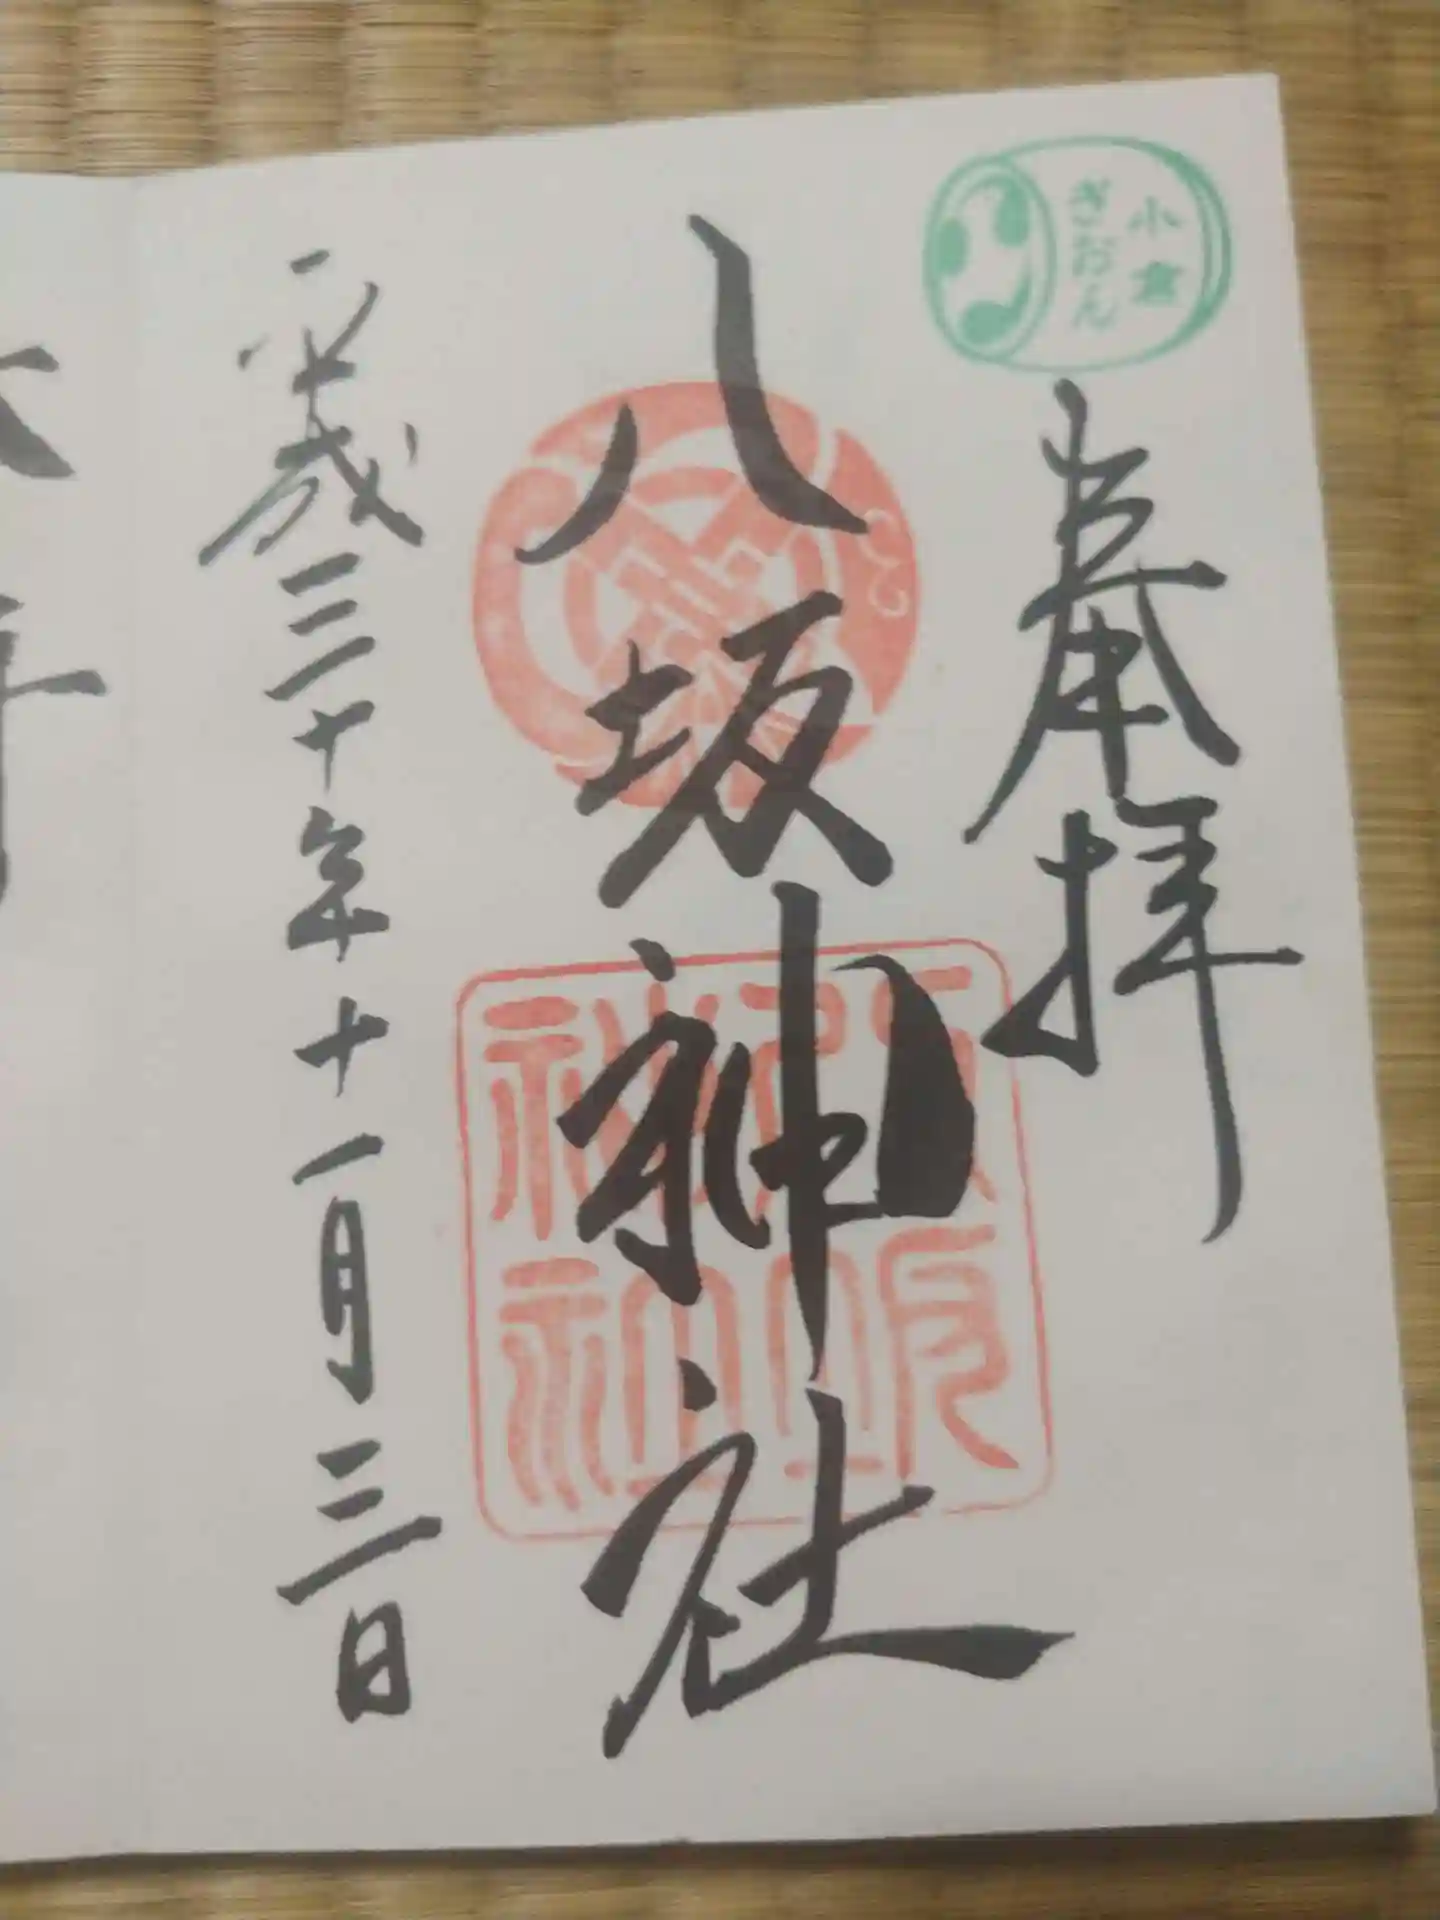 小倉
ぎおん
奉拝
八坂神社
平成三十年十一月三日